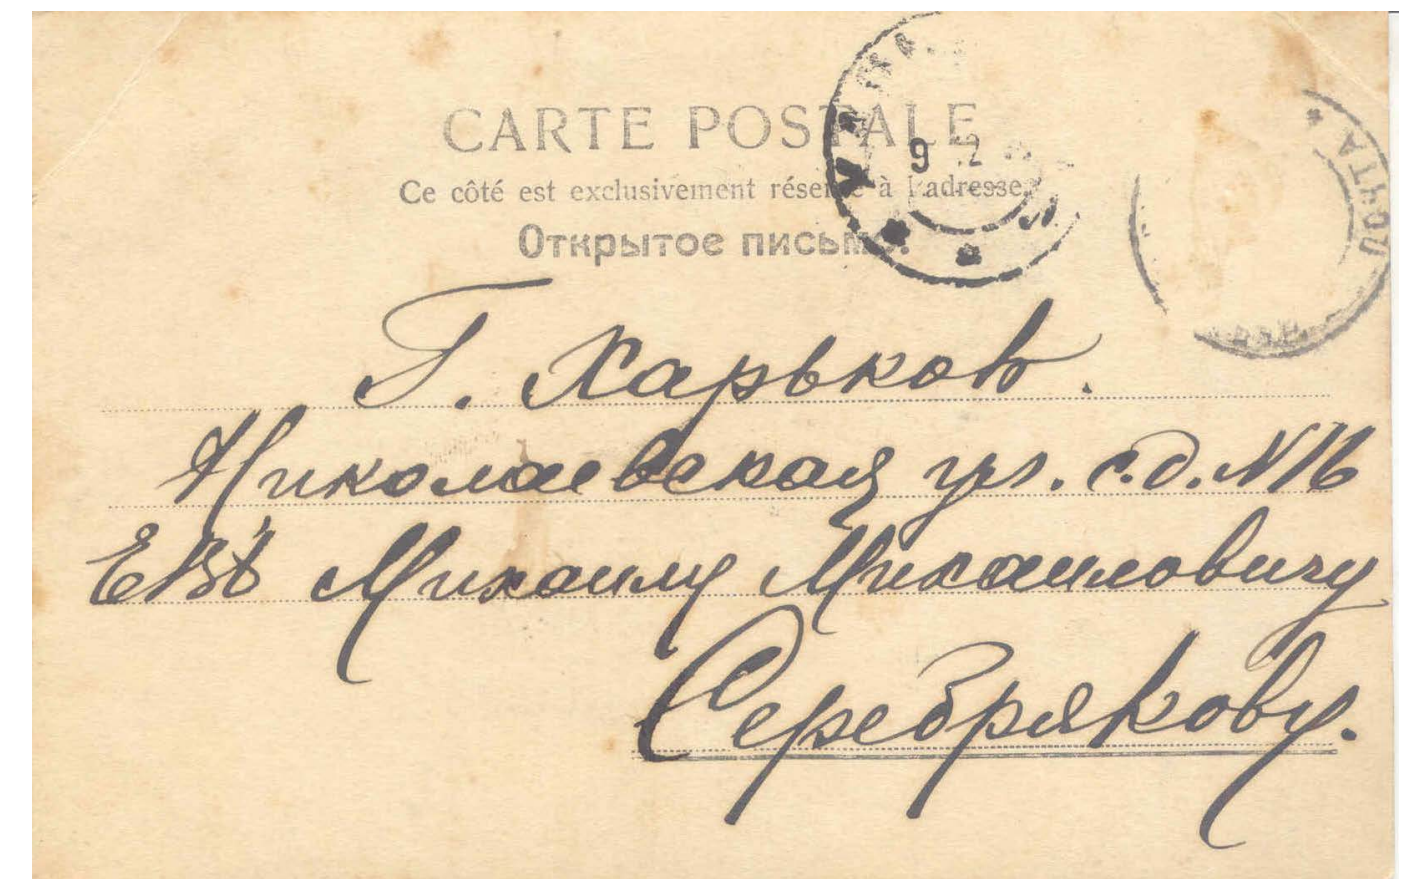 CARTE POSTALE
Ce côté est exclusivement réservé à l'adresse.
Открытое письмо.
9 12
ПОЧТА
Г. Харьковъ.
Николаевская ул. с.д. N 16
ЕВБ Михаилу Михаиловичу
Серебрякову.